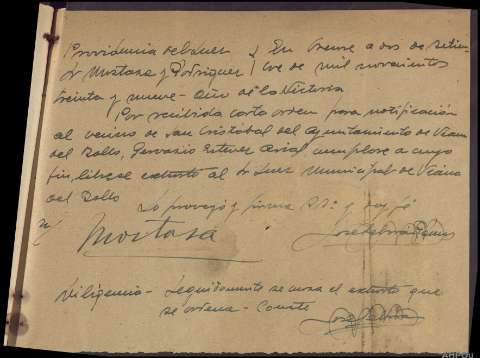 Providencia del Juez } En Orense a dos de Setiem-
Sr Mostaza y Rodriguez } bre de mil novecientos
treinta y nueve - Año de la Victoria
Por recibida carta orden para notificación
al vecino de San Cristobal del Ayuntamiento de Viana
del Bollo, Gervasio Estevez Arial cumplase a cuyo
fin, librese exhorto al Sr Juez Municipal de Viana
del Bollo
Lo proveyó y firma SSª y doy fé
Mostaza
Diligencia - Seguidamente se cursa el exhorto que
se ordena - Conste
AHPOu